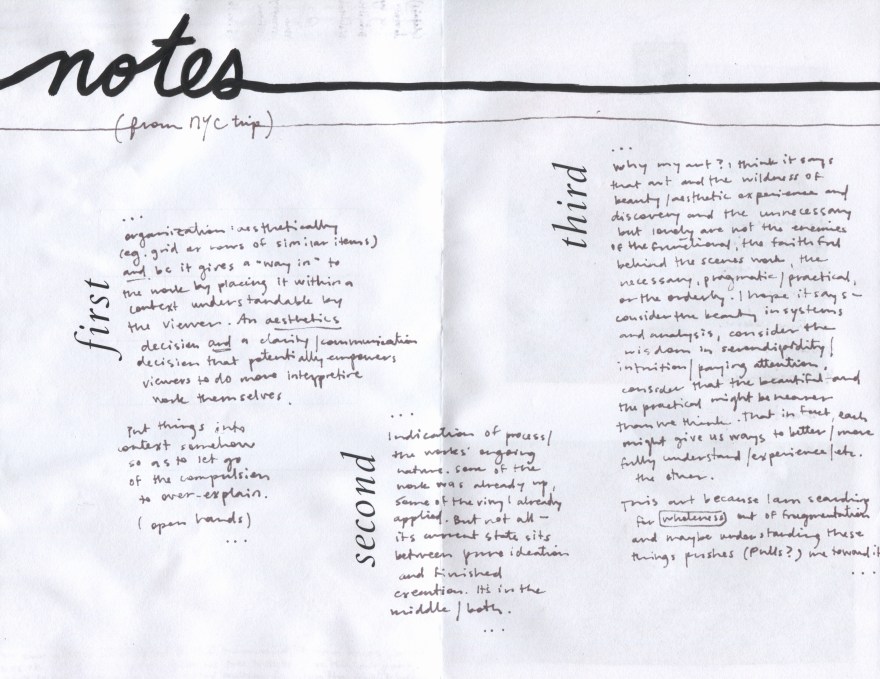 notes
(from NYC trip)
first
...
organization: aesthetically
(eg. grid or rows of similar items)
and bc it gives a "way in" to
the work by placing it within a
context understandable by
the viewer. An aesthetics
decision and a clarity/communication
decision that potentially empowers
viewers to do more interpretive
work themselves.
Put things into
context somehow
so as to let go
of the compulsion
to over-explain.
(open hands)
...
second
...
Indication of process/
the works' ongoing
nature. Some of the
work was already up,
some of the vinyl already
applied. But not all –
its current state sits
between pure ideation
and finished
execution. It's in the
middle/both.
...
third
...
Why my art? I think it says
that art and the wildness of
beauty/aesthetic experience and
discovery and the unnecessary
but lovely are not the enemies
of the functional, the faithful
behind the scenes work, the
necessary, pragmatic/practical,
or the orderly. I hope it says –
consider the beauty in systems
and analysis, consider the
wisdom in serendipity/
intuition/paying attention.
consider that the beautiful and
the practical might be nearer
than we think. That in fact, each
might give us ways to better/more
fully understand/experience/etc.
the other.
This art because I am searching
for wholeness out of fragmentation
and maybe understanding these
things pushes (pulls?) me toward it
...